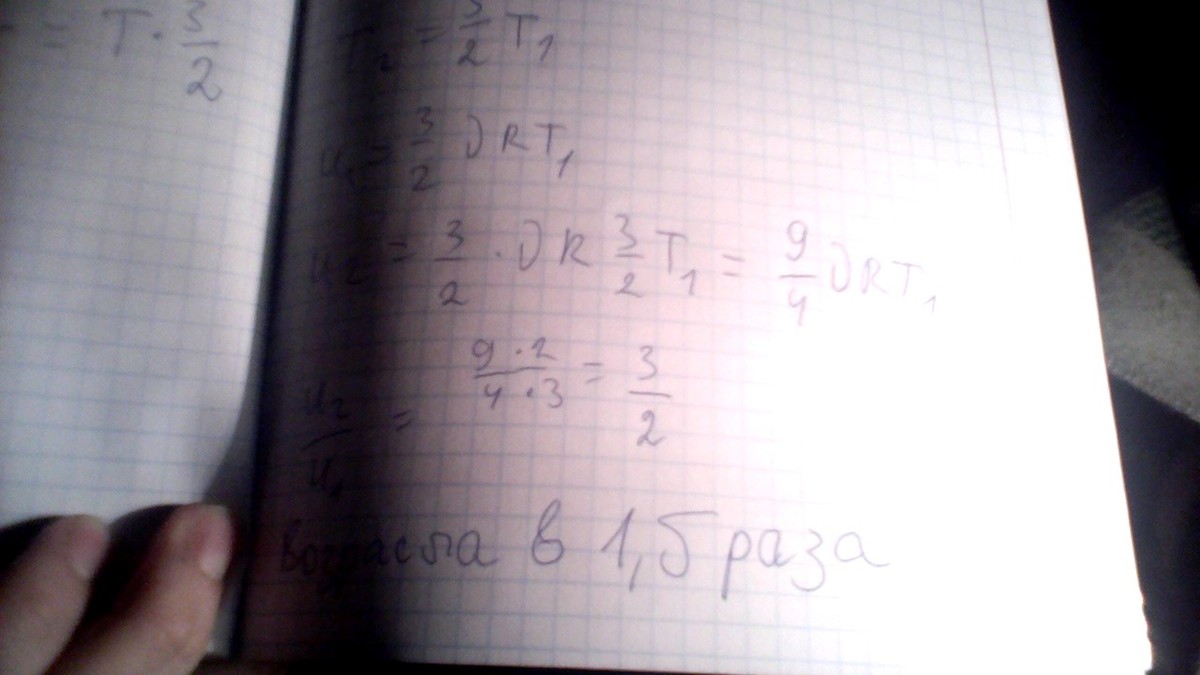 = T · 3/2
T₂ = 3/2 T₁
U₁ = 3/2 νRT₁
U₂ = 3/2 · νR 3/2 T₁ = 9/4 νRT₁
U₂/U₁ = 9·2/4·3 = 3/2
Возрасла в 1,5 раза